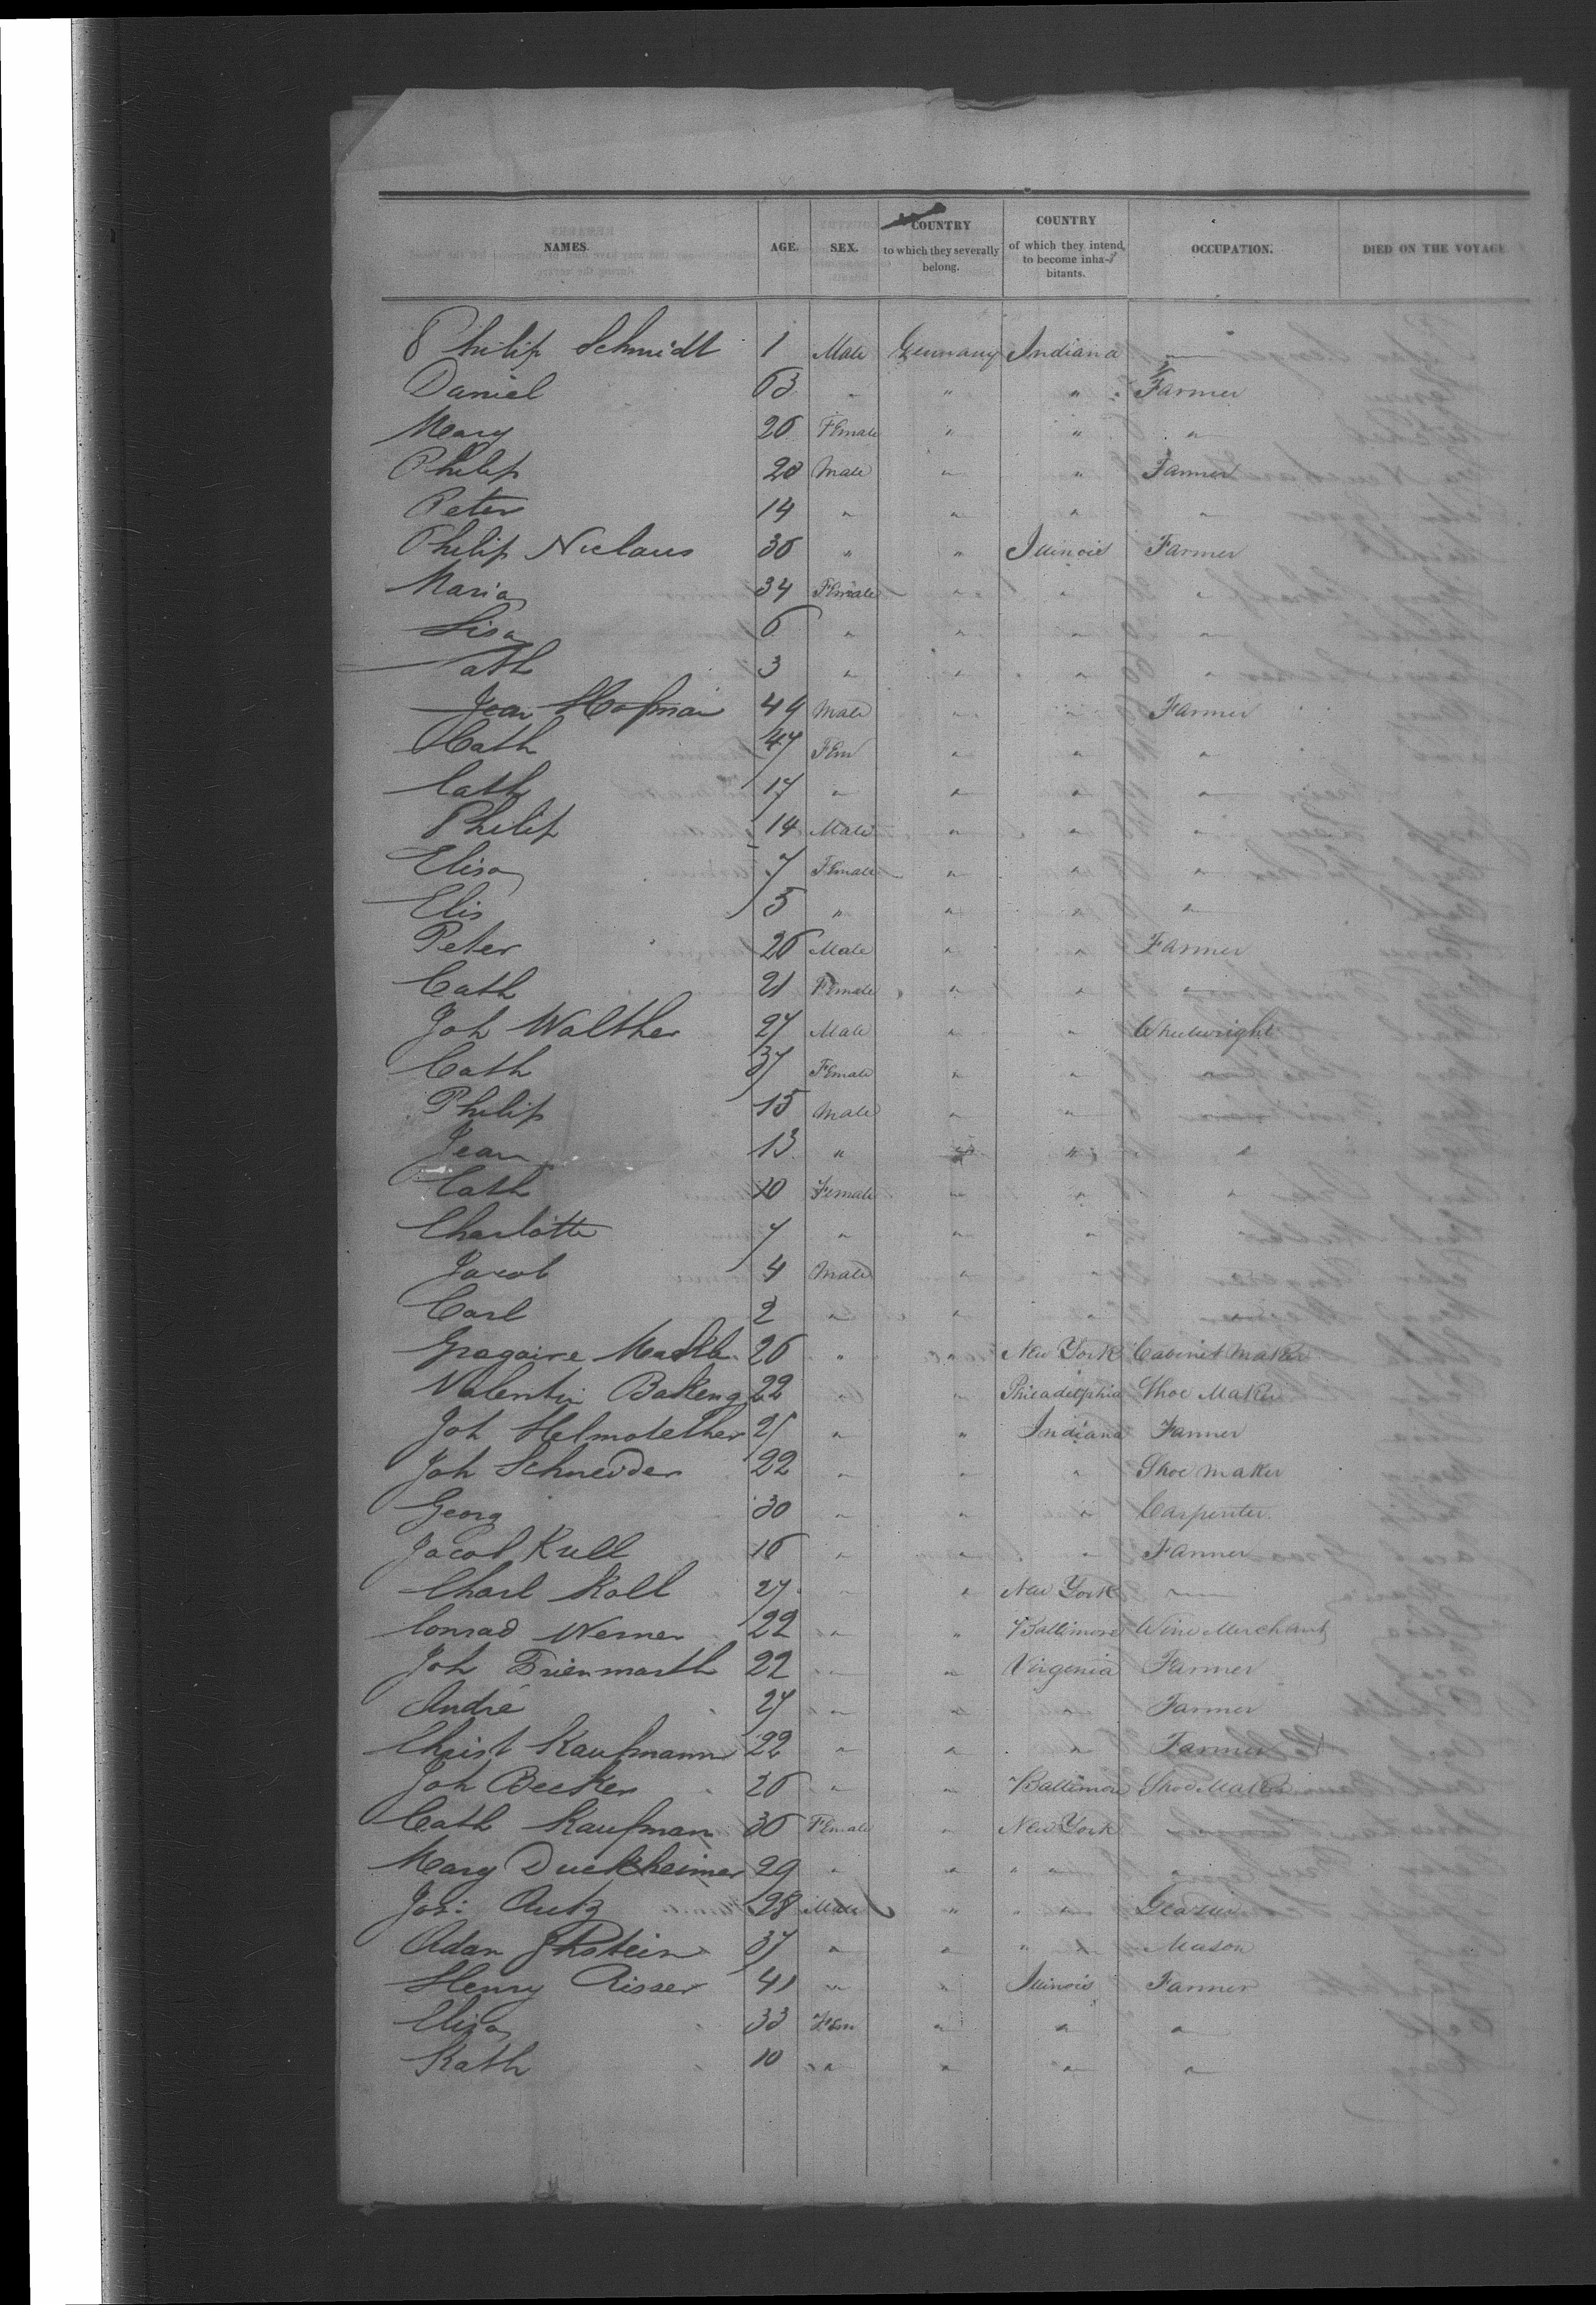 NAMES. AGE. SEX. COUNTRY to which they severally belong. COUNTRY of which they intend to become inhabitants. OCCUPATION. DIED ON THE VOYAGE
Philip Schmidt 1 Male Germany Indiana —
Daniel 63 " " " Farmer
Mary 26 Female " " "
Philip 20 Male " " Farmer
Peter 14 " " " "
Philip Niclaus 36 " " Illinois Farmer
Maria 34 Female " " "
Lisa 6 " " " "
Cath 3 " " " "
Jean Hofman 49 Male " " Farmer
Cath 47 Fem " " "
Cath 17 " " " "
Philip 14 Male " " "
Elisa 7 Female " " "
Elis 5 " " " "
Peter 26 Male " " Farmer
Cath 21 Female " " "
Joh Walther 27 Male " " Wheelwright
Cath 37 Female " " "
Philip 15 Male " "
Jean 13 " " " "
Cath 10 Female " " "
Charlotte 7 " " "
Jacob 4 Male " "
Carl 2 " " "
Gregoire 26 " " New York Cabinet Maker
Valentin Bakeng 22 " " Philadelphia Shoe Maker
Joh 21 " " Indiana Farmer
Joh Schneider 22 " " " Shoe Maker
Georg 30 " " " Carpenter
Jacob Krell 16 " " " Farmer
Charl Koll 27 " " New York —
Conrad Werner 22 " " Baltimore Wine Merchant
Joh 22 " " Virginia Farmer
André 27 " " " Farmer
Christ Kaufmann 22 " " " Farmer
Joh Becker 26 " " Baltimore Shoe Maker
Cath Kaufman 36 Female " New York —
Mary Duckheimer 29 " " " " "
Jos: Autz 28 Male " " "
Adam 37 " " " " Mason
Henry Risser 41 " " Illinois Farmer
Eliza 33 Fem " " "
Kath 10 " " " "